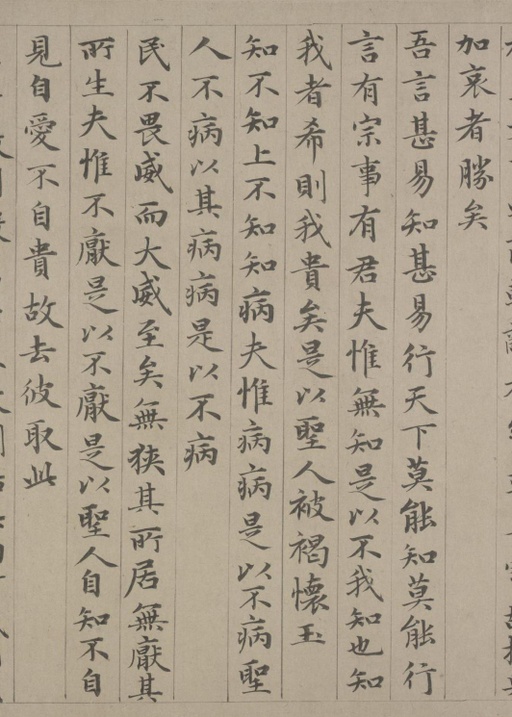 加哀者勝矣
吾言甚易知甚易行天下莫能知莫能行
言有宗事有君夫惟無知是以不我知也知
我者希則我貴矣是以聖人被褐懷玉
知不知上不知知病夫惟病病是以不病聖
人不病以其病病是以不病
民不畏威而大威至矣無狹其所居無厭其
所生夫惟不厭是以不厭是以聖人自知不自
見自愛不自貴故去彼取此